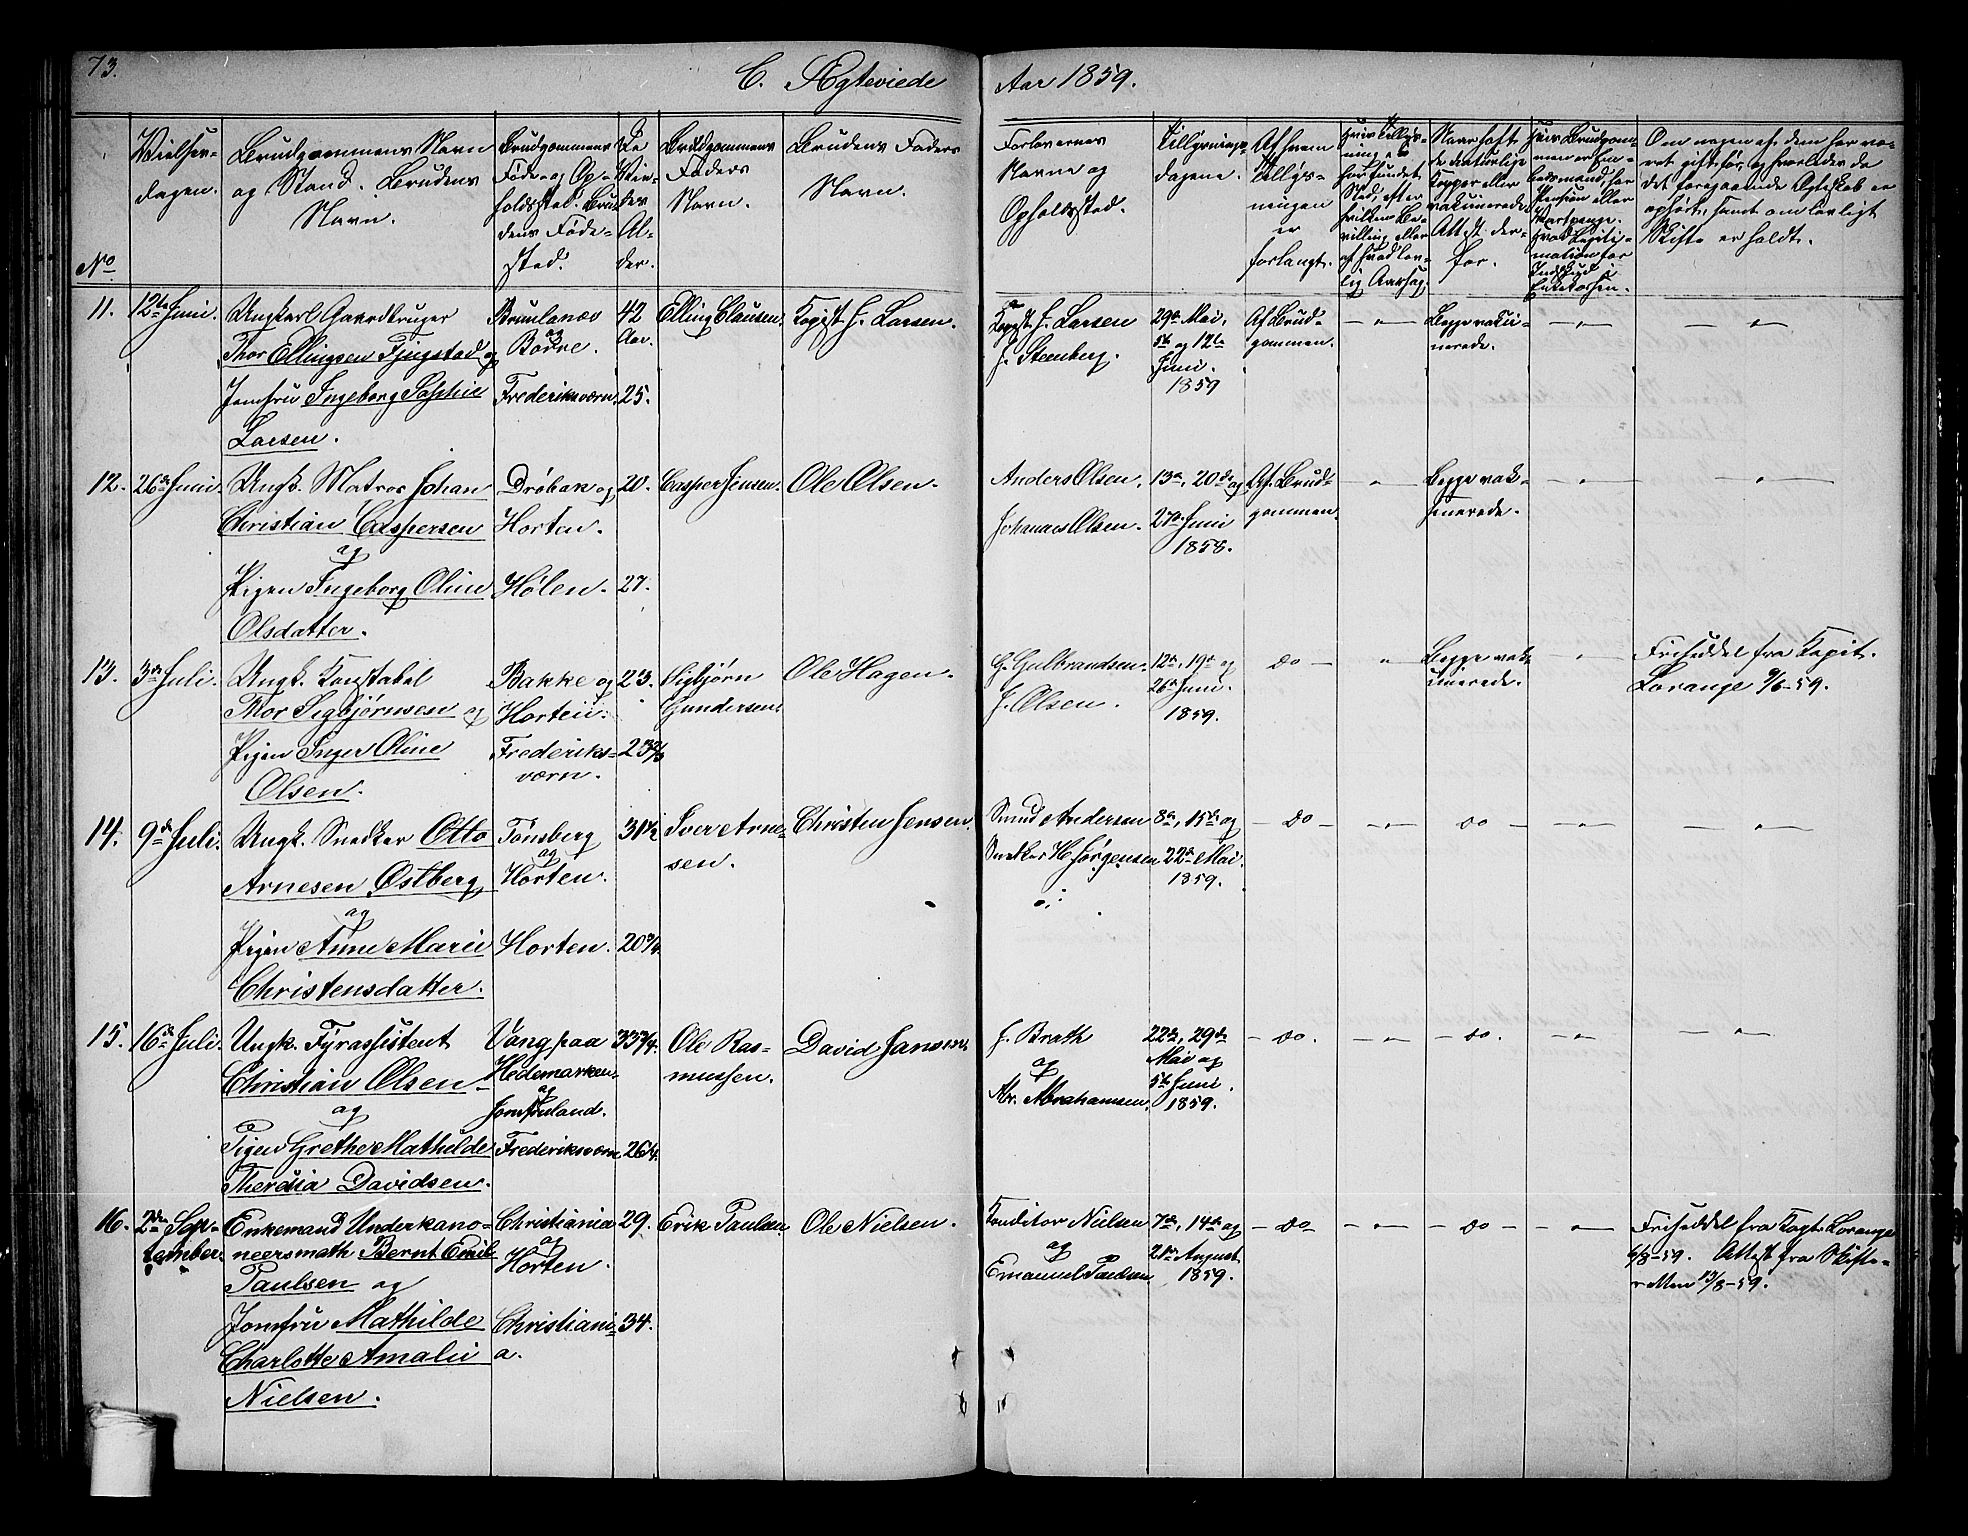 73.
C. Ægteviede
Aar 1859.
No
Vielses-
dagen.
Brudgommens Navn
og Stand. Brudens
Navn.
Brudgommens
Føde- og Op-
holdssted. Bru-
dens Føde-
sted.
De
Vie-
des
Al-
der.
Brudgommens
Faders
Navn.
Brudens Faders
Navn.
Forlovernes
Navne og
Opholdssted.
Tillysnings-
dagene.
Af hvem
Tillys-
ningen
er
forlangt.
Hvis Tillys-
ning ei
har fundet
Sted, efter
hvilken Be-
villing eller
af hvad lov-
lig Aarsag.
Naar havt
de naturlige
Kopper eller
vakcinerede.
Attest der-
for.
Hvis Brudgom-
men er Em-
bedsmand, har
Pension eller
Vartpenge.
Hvad Legiti-
mation for
Indskud i
Enkekassen.
Om nogen af dem har væ-
ret gift før, og hvorledes de
det foregaaende Ægteskab er
ophørt, samt om lovligt
Skifte er holdt.
11. 12te Juni. Ungkarl Gaardbruger
Thor Ellingsen Fjugstad og
Jomfru Ingeborg Sophie
Larsen.
Brunlanæs
og
Borre.
Frederiksværn.
42
Aar.
25.
Elling Clausen.
Kopist J. Larsen.
Kopist J. Larsen
J. Steenberg.
29de Mai,
5te og 12te
Juni.
1859
Af Brud-
gommen.
— " —
Begge vakci-
nerede.
— " —
— " —
12. 26de Juni. Ungk. Matros Johan
Christian Caspersen
og
Pigen Ingeborg Oline
Olsdatter.
Drøbak og
Horten.
Hølen.
20.
27.
Casper Jensen.
Ole Olsen.
Anders Olsen.
Johannes Olsen.
13de, 20de og
27de Juni
1858.
Af Brud-
gommen.
— " —
Begge vak-
cinerede.
— " —
— " —
13. 3die Juli. Ungk. Konstabel
Thor Sigbjørnsen og
Pigen Inger Oline
Olsen.
Bakke og
Horten.
Frederiks-
værn.
23.
23
Sigbjørn
Gundersen.
Ole Hagen.
G. Gulbrandsen.
J. Olsen.
12te, 19de og
26de Juni
1859.
Do —
"
Begge vak-
cinerede.
— " —
Friseddel fra Kapit.
Lorange 9/6-59.
14. 9de Juli. Ungk. Snedker Otto
Arnesen Østberg
og
Pigen Anne Marie
Christensdatter.
Tønsberg
og
Horten.
Horten.
31½
20¾.
Iver Arne-
sen.
Christen Jensen.
Smed Andersen
Snedker H. Jørgensen
8de, 15de og
22de Mai.
1859.
— Do —
— " —
— Do —
— " —
— " —
15. 16de Juli. Ungk. Fyrassistent
Christian Olsen
og
Pigen Grethe Mathilde
Theresia Davidsen.
Vang paa
Hedemarken
og
Jomfruland.
Frederiksværn
33¾.
26¼.
Ole Ras-
mussen.
David Jansen.
J. Brath
og
Abr. Abrahamsen.
22de, 29de
Mai og
5te Juni.
1859.
— Do.
— " —
— Do.
— " —
— " —
16. 2den Sep-
tember.
Enkemand Underkano-
neersmath Bernt Emil
Paulsen og
Jomfru Mathilde
Charlotte Amalie
Nielsen.
Christiania
og
Horten.
Christiani-
a.
29.
34.
Erik Paulsen.
Ole Nielsen.
Konditor Nielsen
og
Emanuel Paulsen
7de, 14de og
21de August
1859.
— Do —
— " —
— Do —
— " —
Friseddel fra Kapt. Lorange
6/8-59. Attest fra Skifte-
retten 13/8-59.